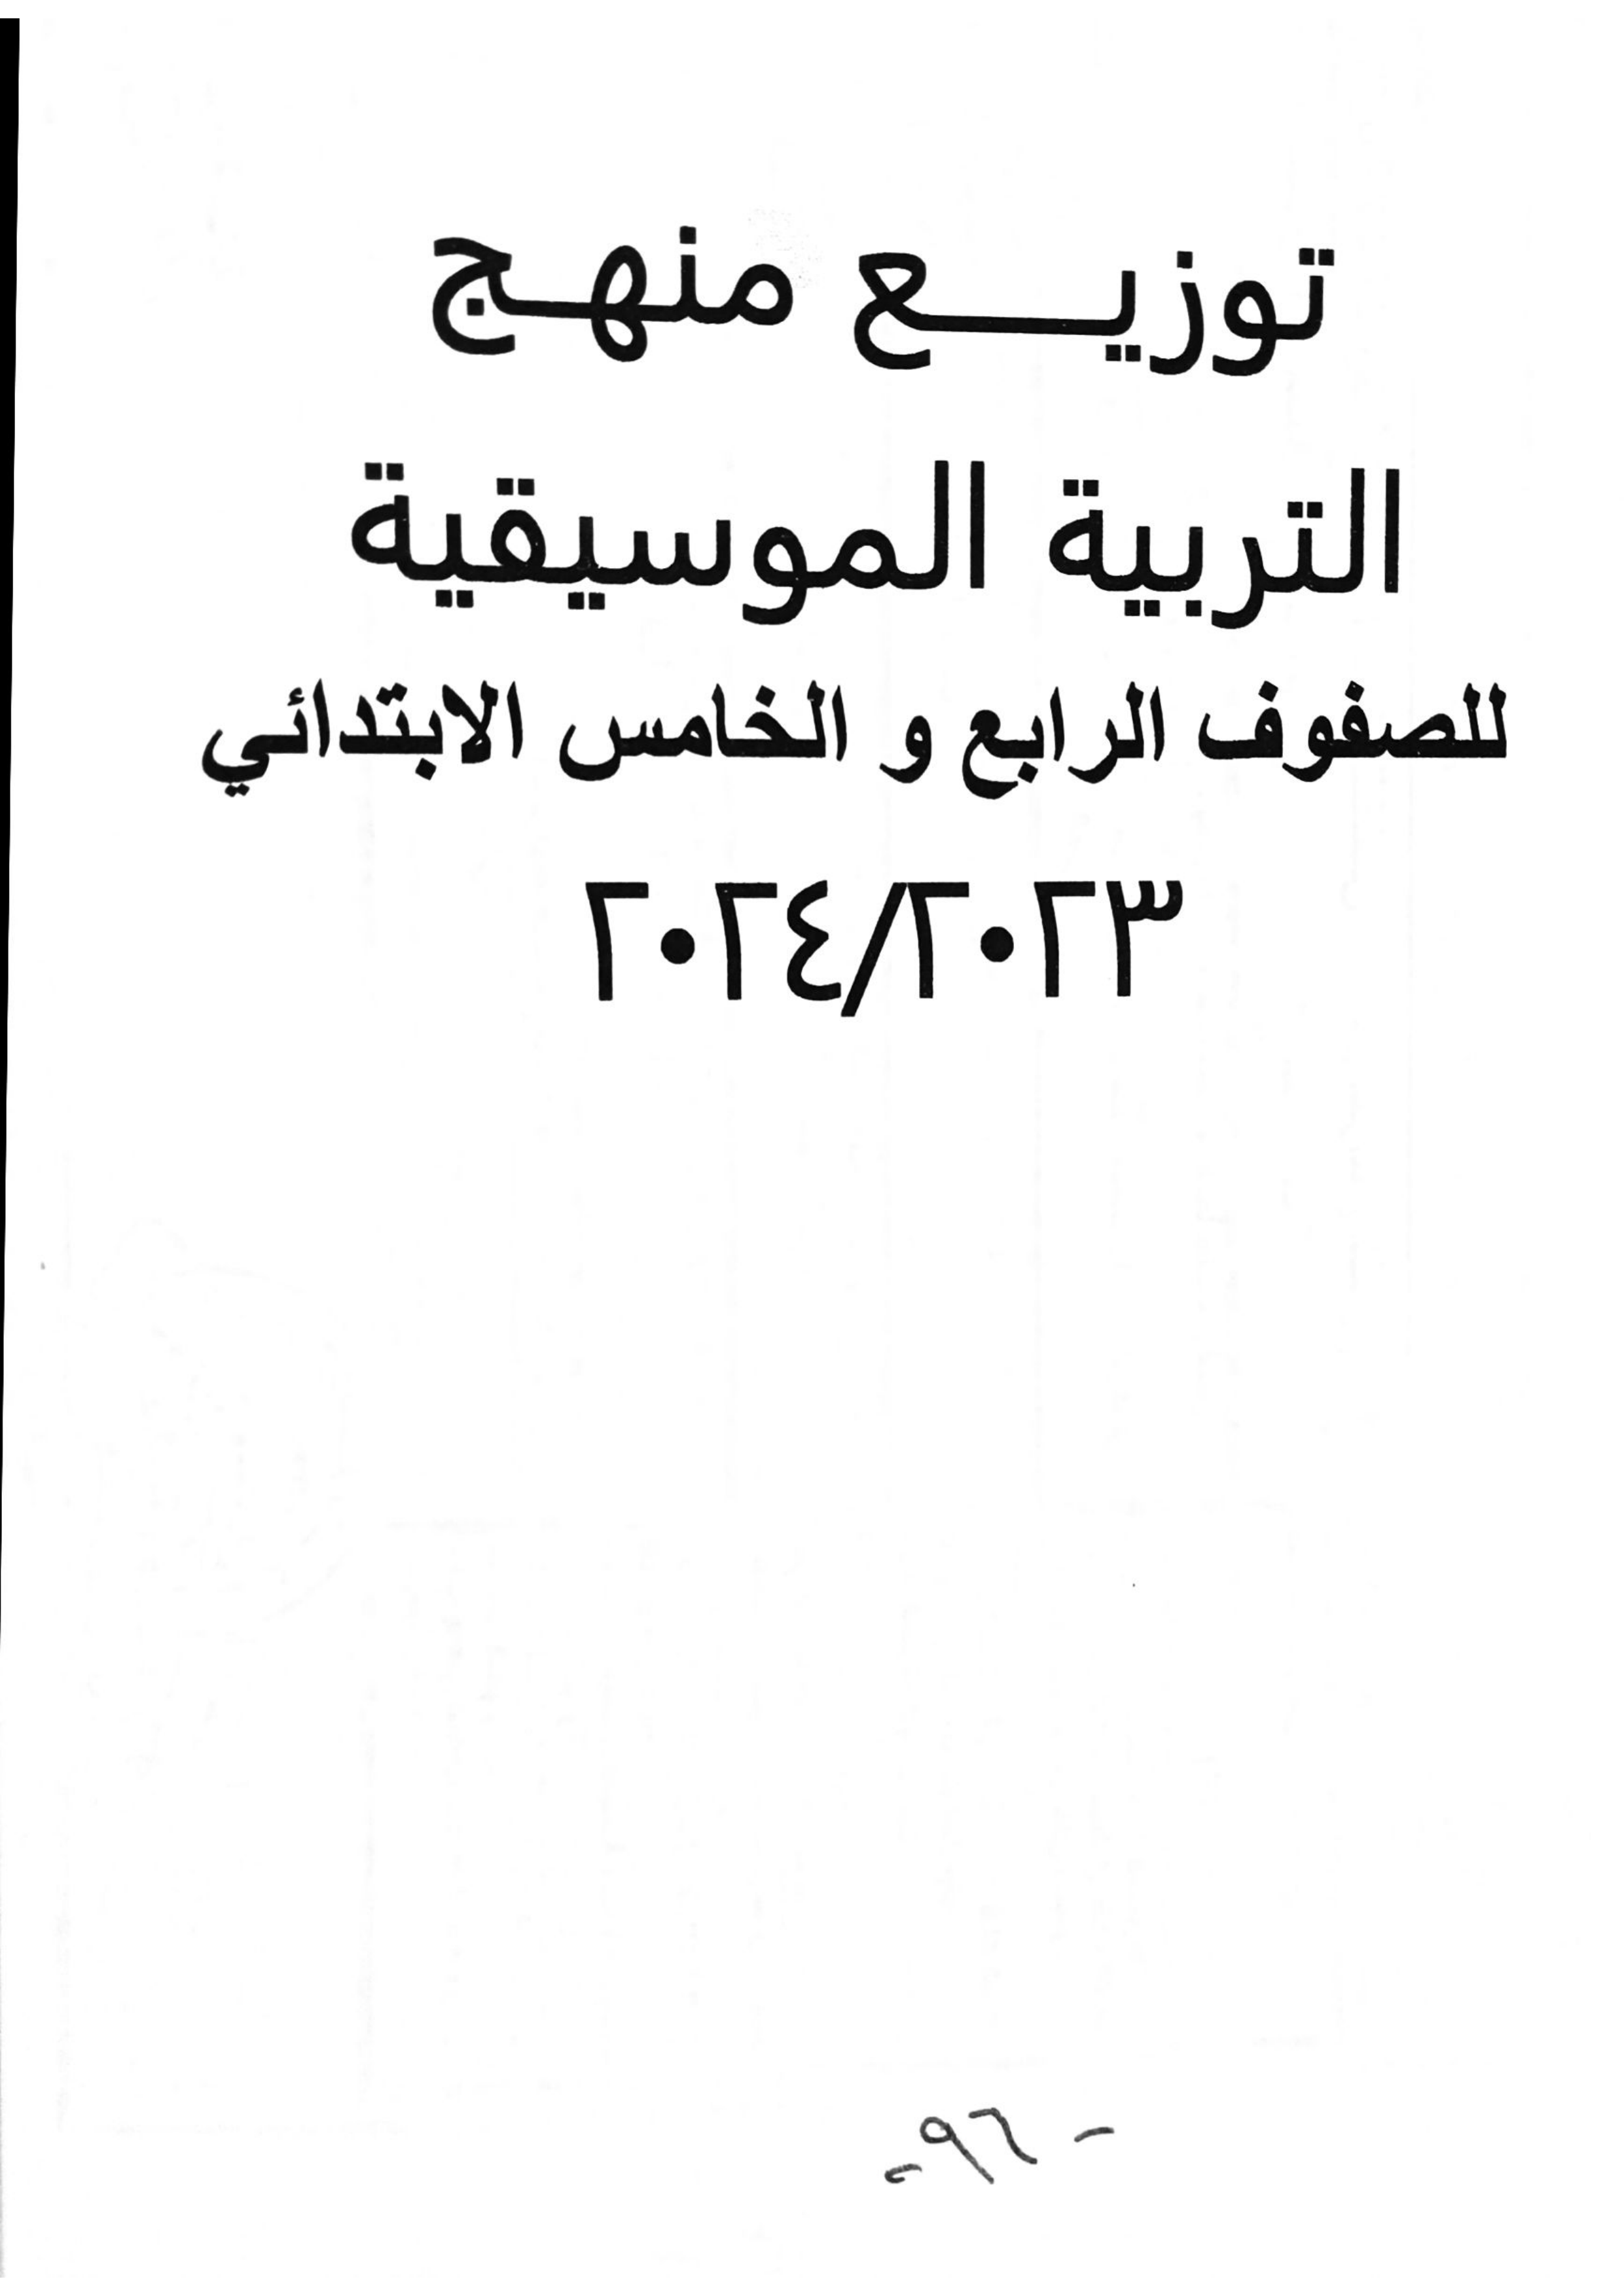 توزيـــع منهـج
التربية الموسيقية
للصفوف الرابع و الخامس الابتدائي
٢٠٢٤/٢٠٢٣
- ٩٦ -